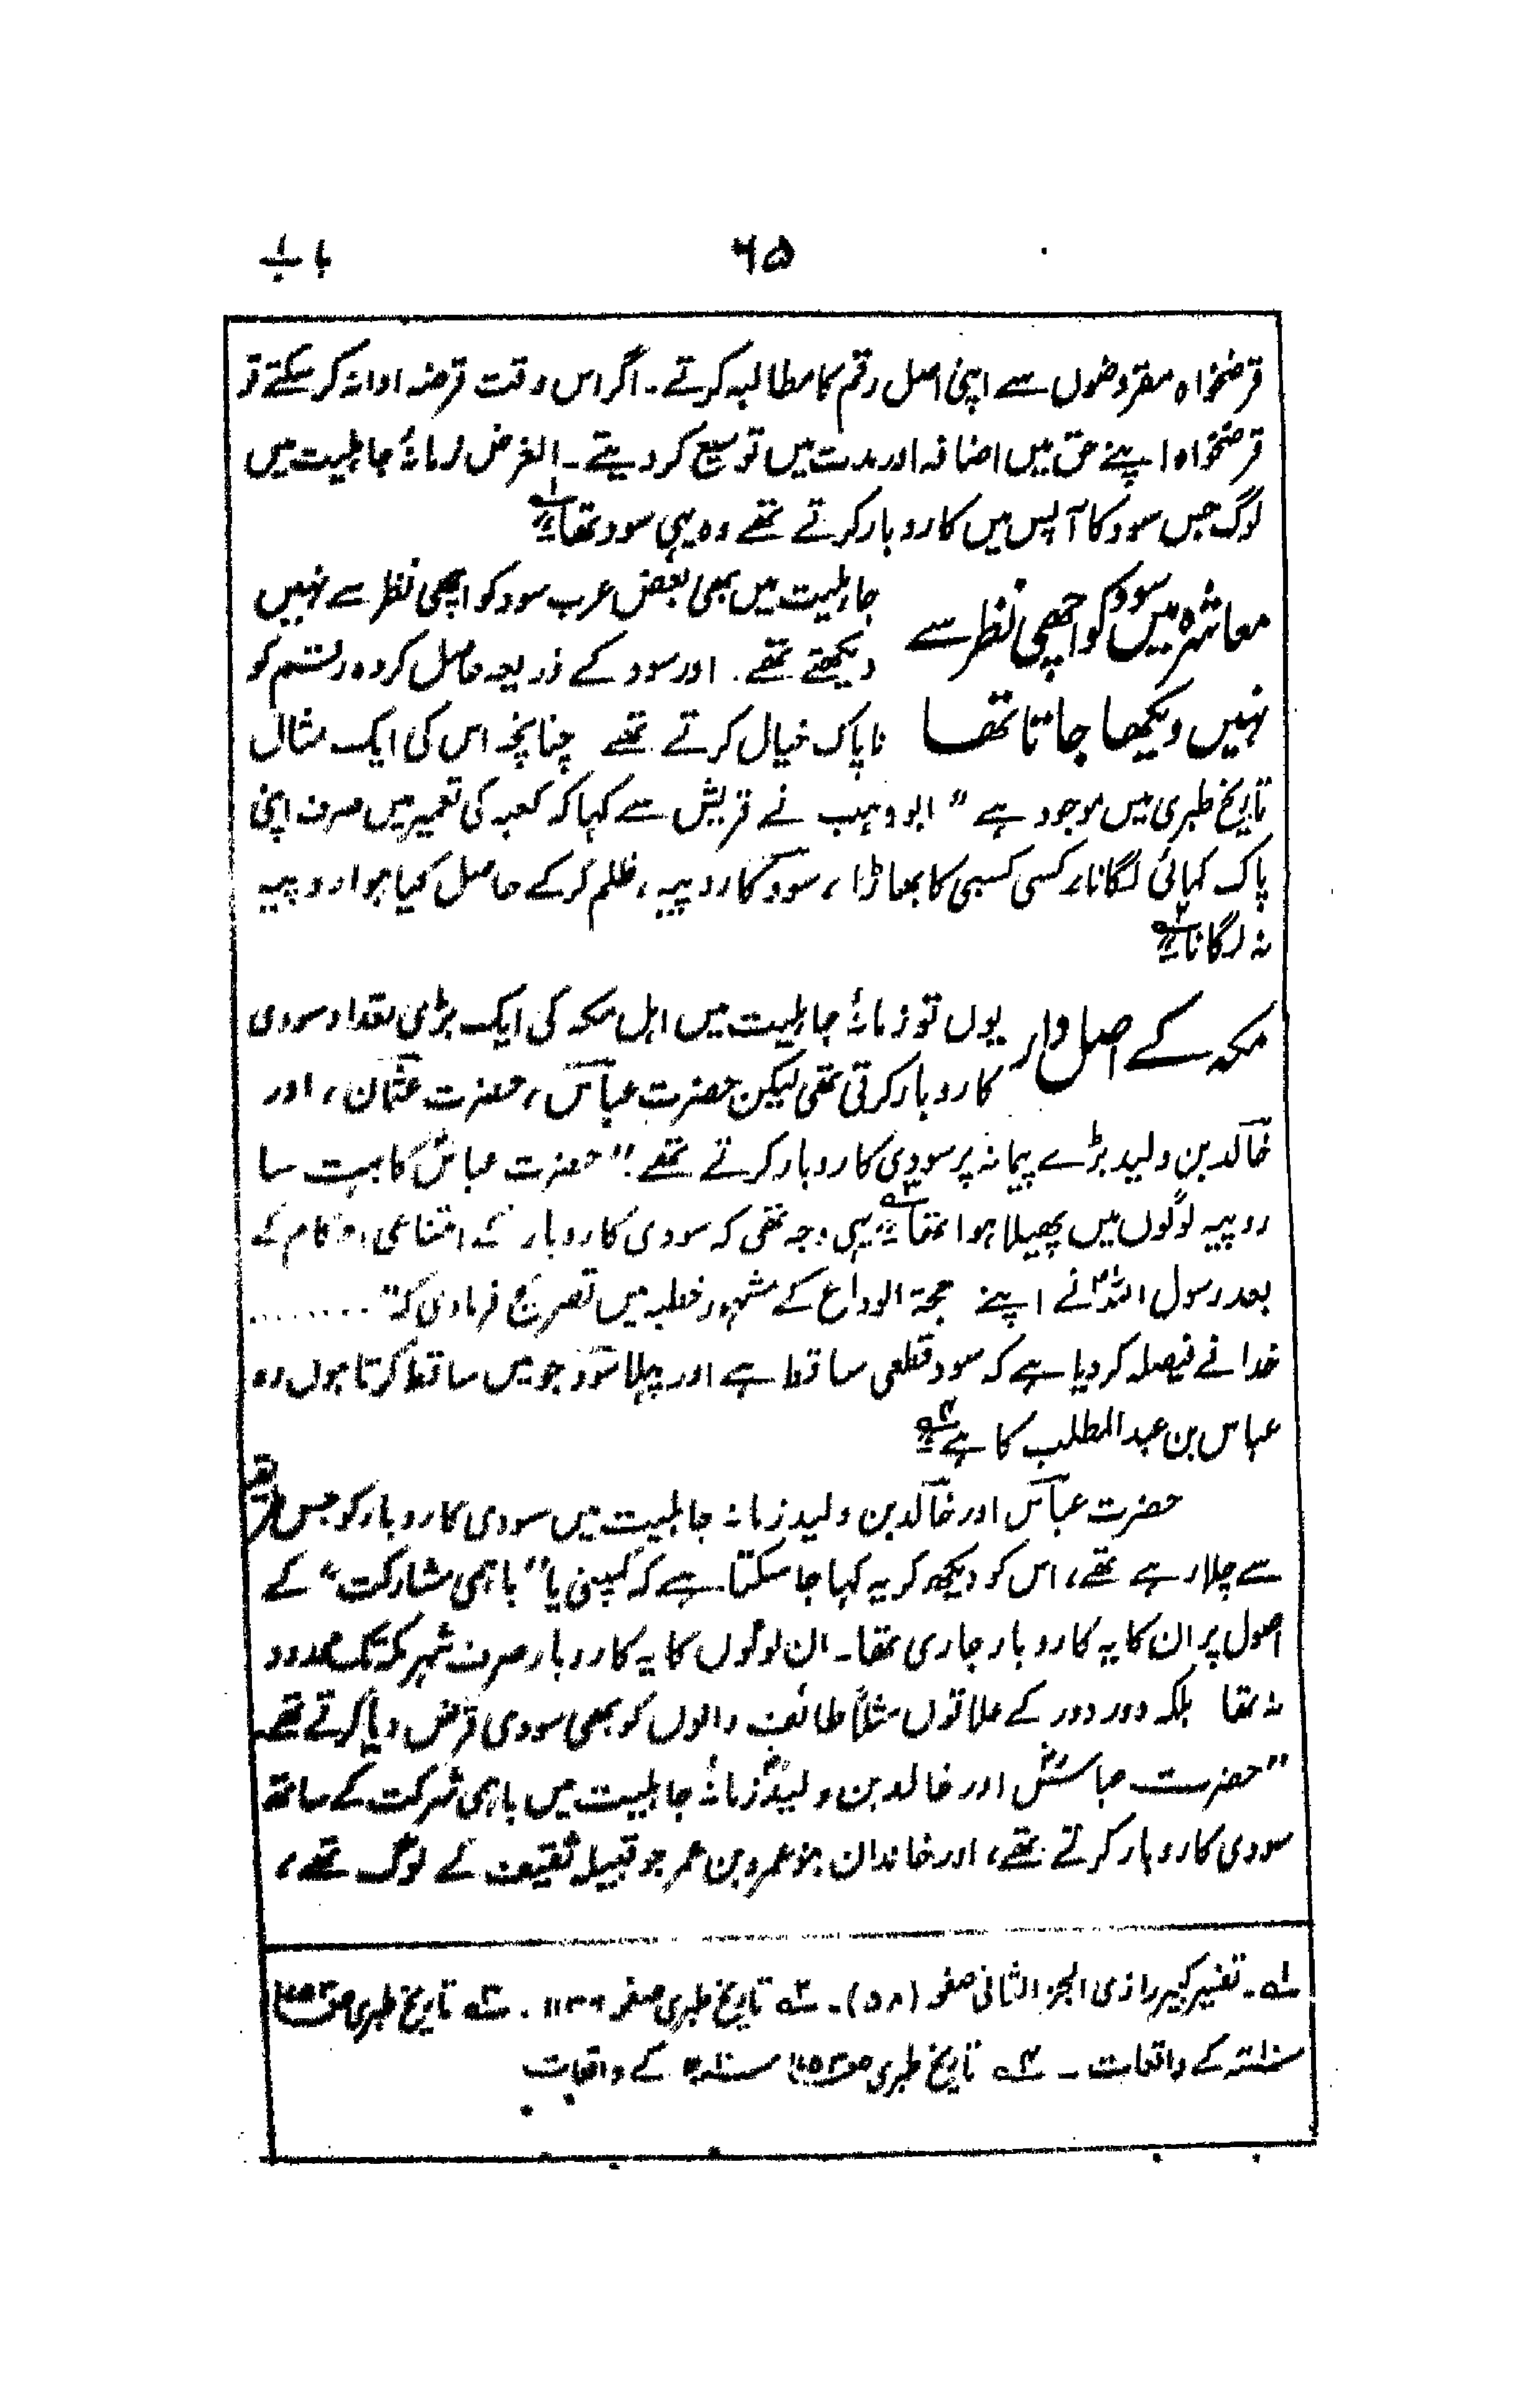 ۶۵ باب
قرضخواہ مقروضوں سے اپنی اصل رقم کا مطالبہ کرتے۔ اگر اس وقت قرضہ ادا نہ کر سکتے تو
قرضخواہ اپنے حق میں اضافہ اور مدت میں توسیع کر دیتے۔ الغرض زمانۂ جاہلیت میں
لوگ جس سود کا آپس میں کاروبار کرتے تھے وہ یہی سود تھا"۱؎
معاشرہ میں سود کو اچھی نظر سے
نہیں دیکھا جاتا تھا
جاہلیت میں بھی بعض عرب سود کو اچھی نظر سے نہیں
دیکھتے تھے۔ اور سود کے ذریعہ حاصل کردہ رقم کو
ناپاک خیال کرتے تھے چنانچہ اس کی ایک مثال
تاریخ طبری میں موجود ہے "ابو وہب نے قریش سے کہا کہ کعبہ کی تعمیر میں صرف اپنی
پاک کمائی لگانا، کسی کسبی کا بھاڑا، سود کا روپیہ، ظلم کر کے حاصل کیا ہوا روپیہ
نہ لگانا"۲؎
مکہ کے اصل دار
یوں تو زمانۂ جاہلیت میں اہل مکہ کی ایک بڑی تعداد سودی
کاروبار کرتی تھی لیکن حضرت عباس، حضرت عثمان، اور
خالد بن ولید بڑے پیمانہ پر سودی کاروبار کرتے تھے۔ "حضرت عباسؓ کا بہت سا
روپیہ لوگوں میں پھیلا ہوا تھا"۳؎ یہی وجہ تھی کہ سودی کاروبار کے امتناعی احکام کے
بعد رسول اللہؐ نے اپنے حجۃ الوداع کے مشہور خطبہ میں تصریح فرمادی کہ "........
خدا نے فیصلہ کر دیا ہے کہ سود قطعی ساقط ہے اور پہلا سود جو میں ساقط کرتا ہوں وہ
عباس بن عبد المطلب کا ہے"۴؎
حضرت عباس اور خالد بن ولید زمانہ جاہلیت میں سودی کاروبار کو جس طریقہ
سے چلا رہے تھے، اس کو دیکھ کر یہ کہا جا سکتا ہے کہ کمپنی یا "باہمی مشارکت" کے
اصول پر ان کا یہ کاروبار جاری تھا۔ ان لوگوں کا یہ کاروبار صرف شہر مکہ تک محدود
نہ تھا بلکہ دور دور کے علاقوں مثلاً طائف والوں کو بھی سودی قرض دیا کرتے تھے
"حضرت عباسؓ اور خالد بن ولیدؓ زمانۂ جاہلیت میں باہمی شرکت کے ساتھ
سودی کاروبار کرتے تھے، اور خاندان بنو عمرو بن عمر جو قبیلہ ثقیف کے لوگ تھے،
۱؎۔ تفسیر کبیر رازی الجزء الثانی صفحہ (۵۸)۔ ۲؎ تاریخ طبری صفحہ ۱۱۳۶۔ ۳؎ تاریخ طبری
کے واقعات۔ ۴؎ تاریخ طبری کے واقعات